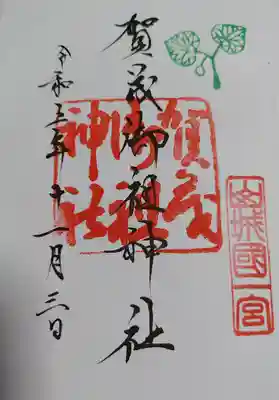 山城國一宮
賀茂御祖神社
賀茂御祖神社
令和三年十一月三日